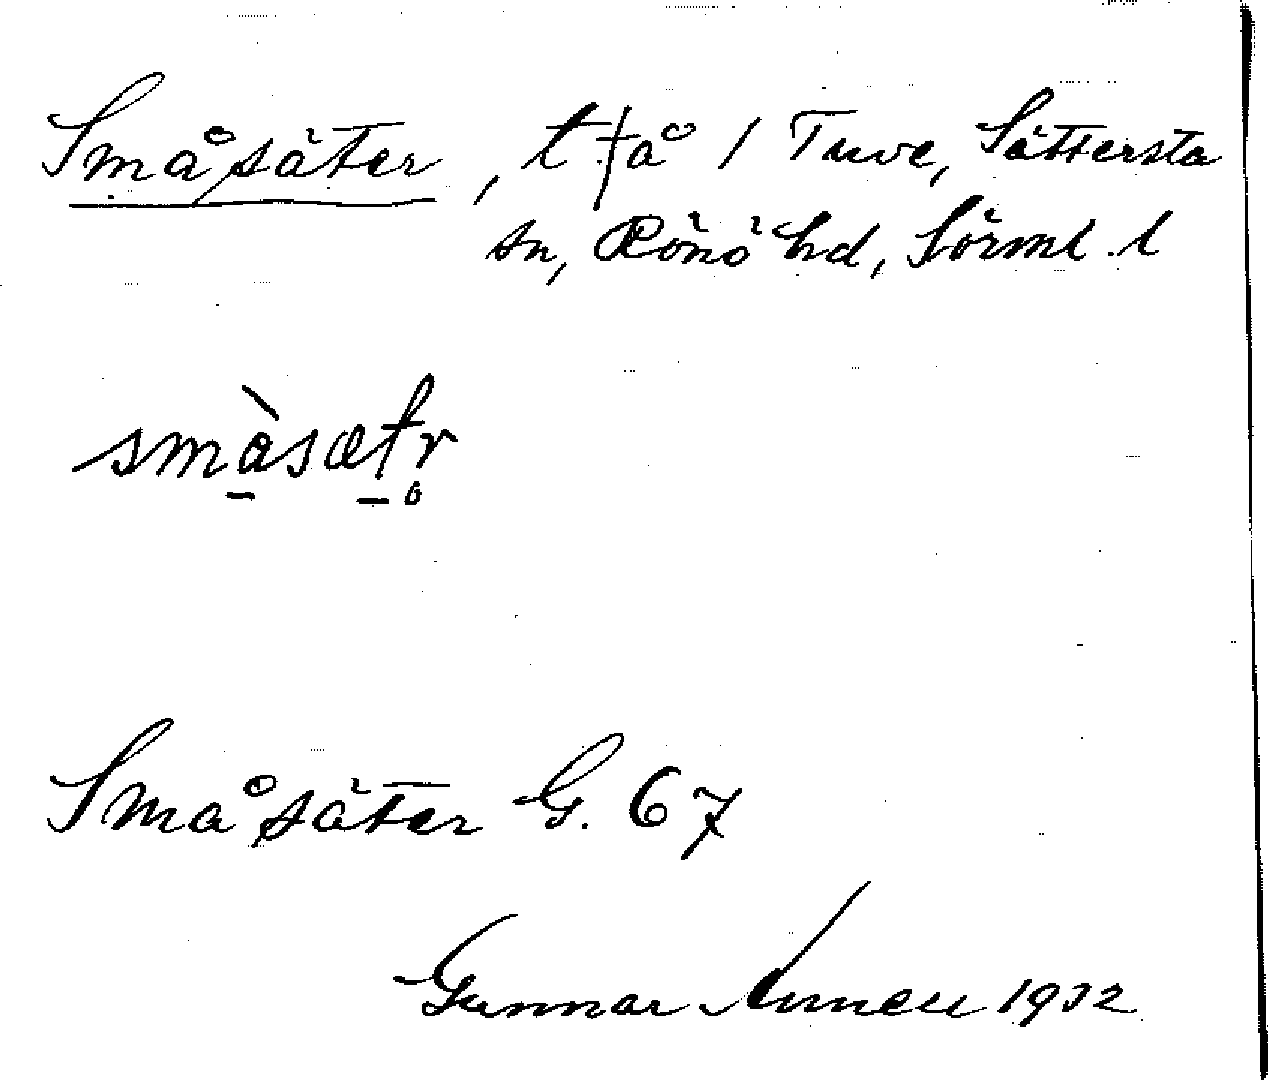 Småsäter, t. på / Tuve, Sättersta
sn, Rönö hd, Sörml. l
småsætr̥
Småsäter G. 67
Gunnar 1932